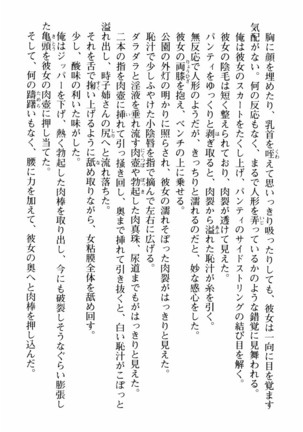 胸に顔を埋めたり、乳首を咥えて思いっきり吸ったりしても、彼女は一向に目を覚ます
気配がない。何の反応もなく、まるで人形を弄っているかのような錯覚に見舞われる。
俺は彼女のスカートをたくし上げ、パンティのサイドストリングの結び目を解く。
彼女の陰毛は短く整えられており、肉裂が透けて見えた。
パンティをゆっくりと剥ぎ取ると、肉裂から溢れた恥汁が糸を引く。
無反応で人形のようだが、きっちりと濡れるのだと、妙な感心をした。
彼女の両膝を抱え、ベンチの上に乗せる。
公園の外灯の明かりに照らされ、彼女の濡れそぼった肉裂がはっきりと見えた。
恥汁で少しふやけた小陰唇を指で摘んで左右に広げる。
ダラダラと淫液を垂れ流す肉壺や勃起した肉真珠、尿道までもがはっきりと見えた。
二本の指を肉壺に挿れて引っ掻き回し、奥まで挿れて引き抜くと、白い恥汁がこぽっと
溢れ出し、時子姉さんの尻へと流れ落ちた。
それを舌で掬い上げるように舐め取りながら、女粘膜全体を舐め回す。
少し、酸味の利いた味がした。
俺はジッパーを下げ、熱く勃起した肉棒を取り出し、今にも破裂しそうなぐらい膨張し
た亀頭を彼女の肉壺に押し当てた。
そして、何の躊躇いもなく、腰に力を加えて、彼女の奥へと肉棒を押し込んだ。